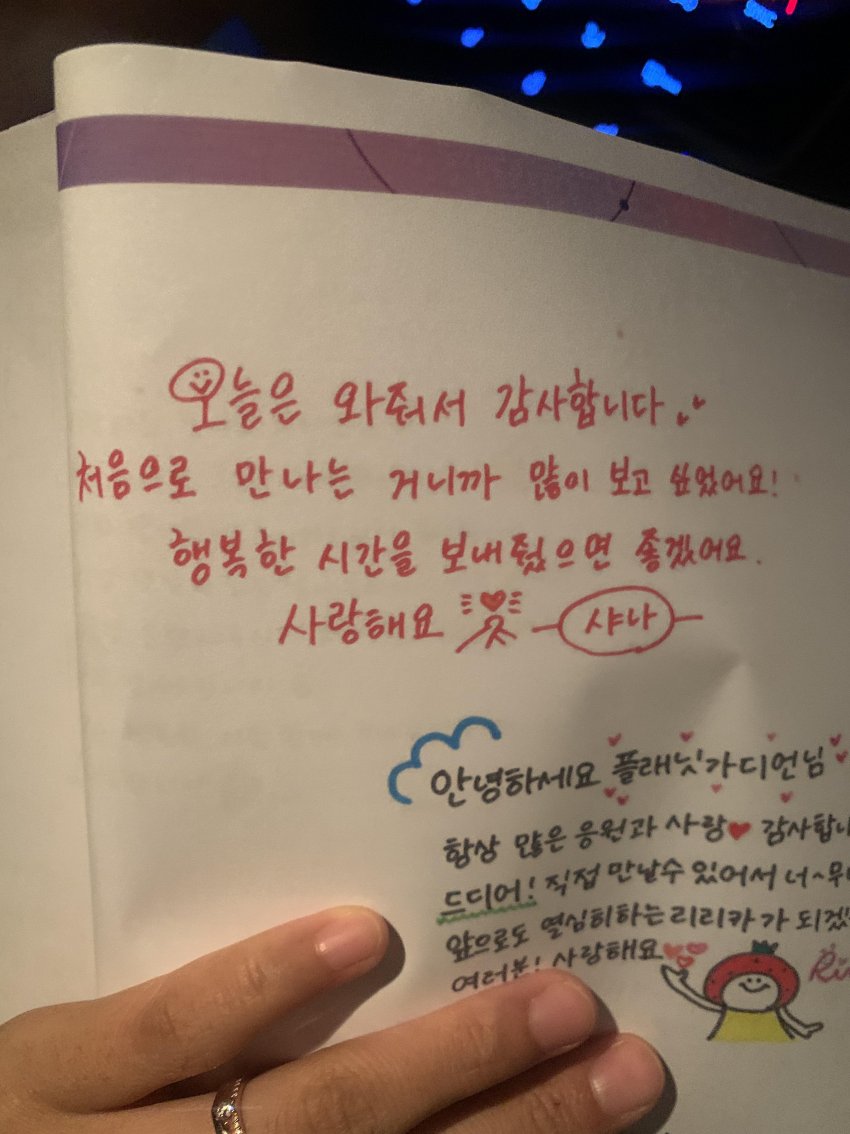 오늘은 와줘서 감사합니다
처음으로 만나는 거니까 많이 보고 싶었어요!
행복한 시간을 보내줬으면 좋겠어요.
사랑해요 샤나
안녕하세요 플래닛가디언님
항상 많은 응원과 사랑 감사합니
드디어! 직접 만날수 있어서 너~무
앞으로도 열심히하는 리리카가 되겠
여러분! 사랑해요